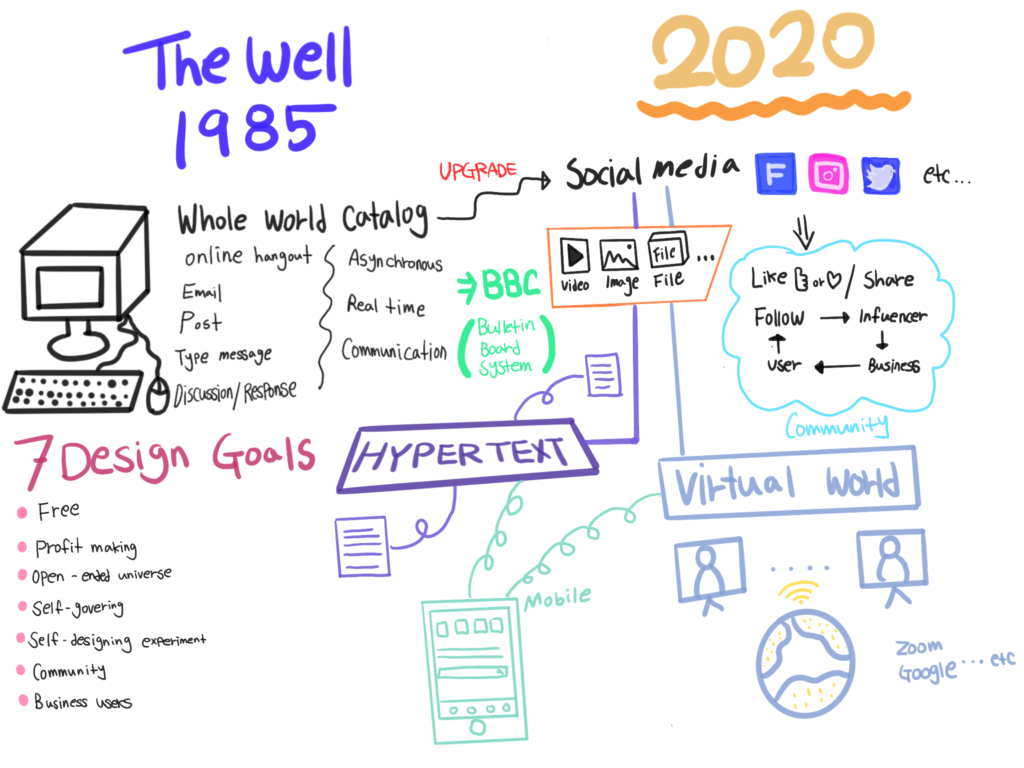 The Well
1985
2020
UPGRADE
Social media
F
etc...
Whole World Catalog
online hangout
Email
Post
Type message
Discussion/Response
Asynchronous
Real time
Communication
BBC
(Bulletin
Board
System)
Video
Image
File
File
...
Like or / Share
Follow
Influencer
User
Business
Community
7 Design Goals
Free
Profit making
Open-ended universe
Self-govering
Self-designing experiment
Community
Business users
HYPERTEXT
Virtual World
Mobile
Zoom
Google ... etc